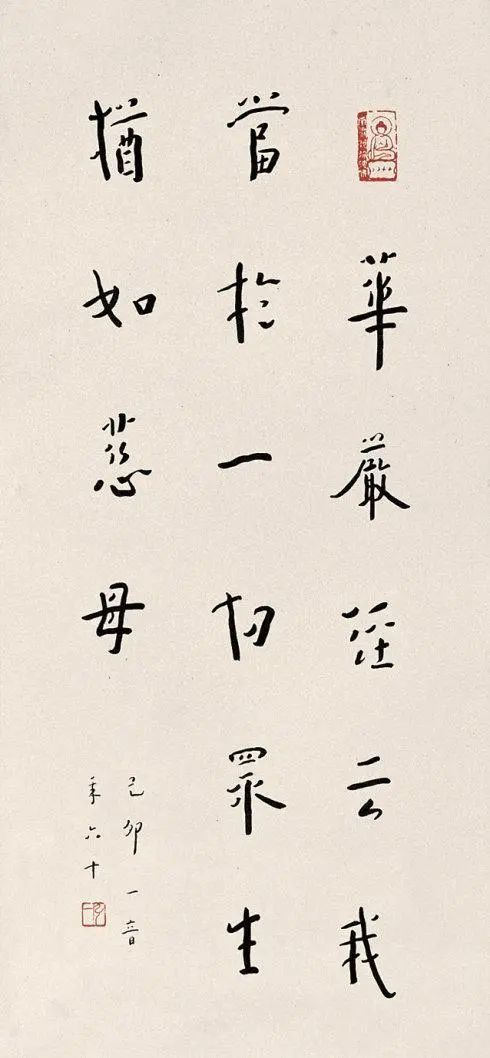 華嚴經云我
當於一切眾生
猶如慈母
己卯一音
年六十